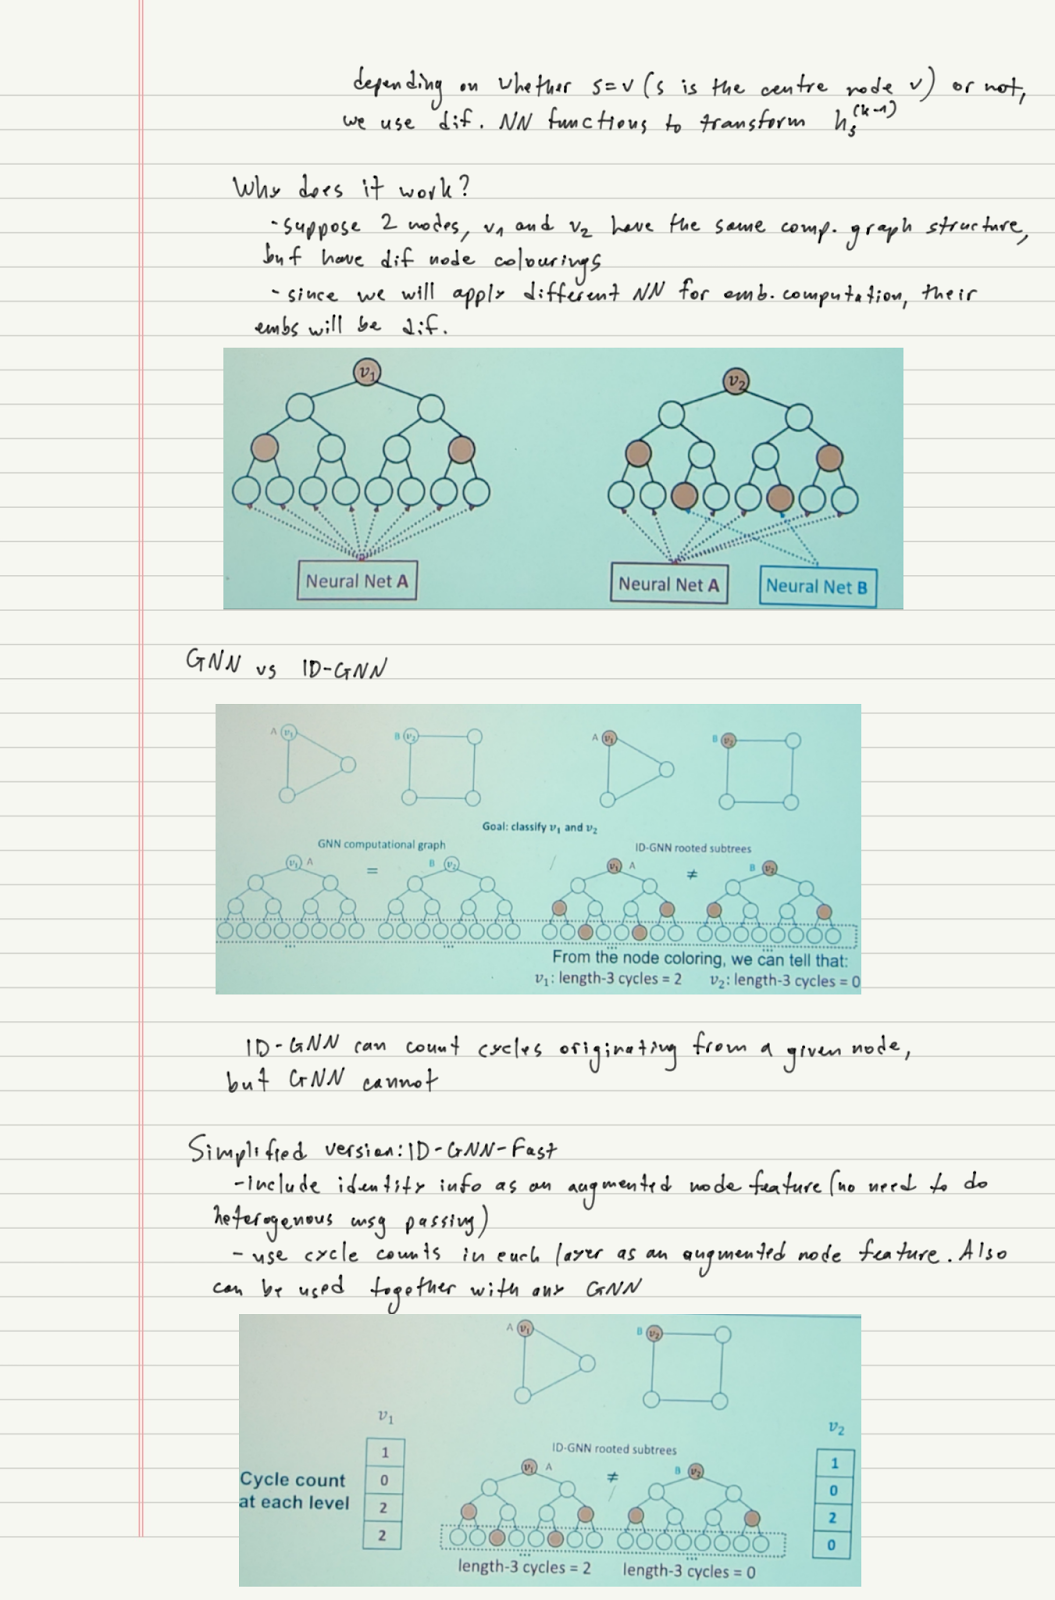 depending on whether s=v (s is the centre node v) or not,
we use dif. NN functions to transform h_s^(k-1)
Why does it work?
-suppose 2 nodes, v1 and v2 have the same comp. graph structure,
but have dif node colourings
-since we will apply different NN for emb. computation, their
embs will be dif.
v1
v2
Neural Net A
Neural Net A
Neural Net B
GNN vs ID-GNN
A v1
B v2
A v1
B v2
Goal: classify v1 and v2
GNN computational graph
ID-GNN rooted subtrees
v1 A
=
B v2
v1 A
≠
B v2
...
...
...
...
From the node coloring, we can tell that:
v1: length-3 cycles = 2
v2: length-3 cycles = 0
ID-GNN can count cycles originating from a given node,
but GNN cannot
Simplified version: ID-GNN-Fast
-include identity info as an augmented node feature (no need to do
heterogenous msg passing)
- use cycle counts in each layer as an augmented node feature. Also
can be used together with any GNN
A v1
B v2
v1
v2
ID-GNN rooted subtrees
v1 A
≠
B v2
Cycle count
at each level
1
0
2
2
1
0
2
0
...
...
length-3 cycles = 2
length-3 cycles = 0